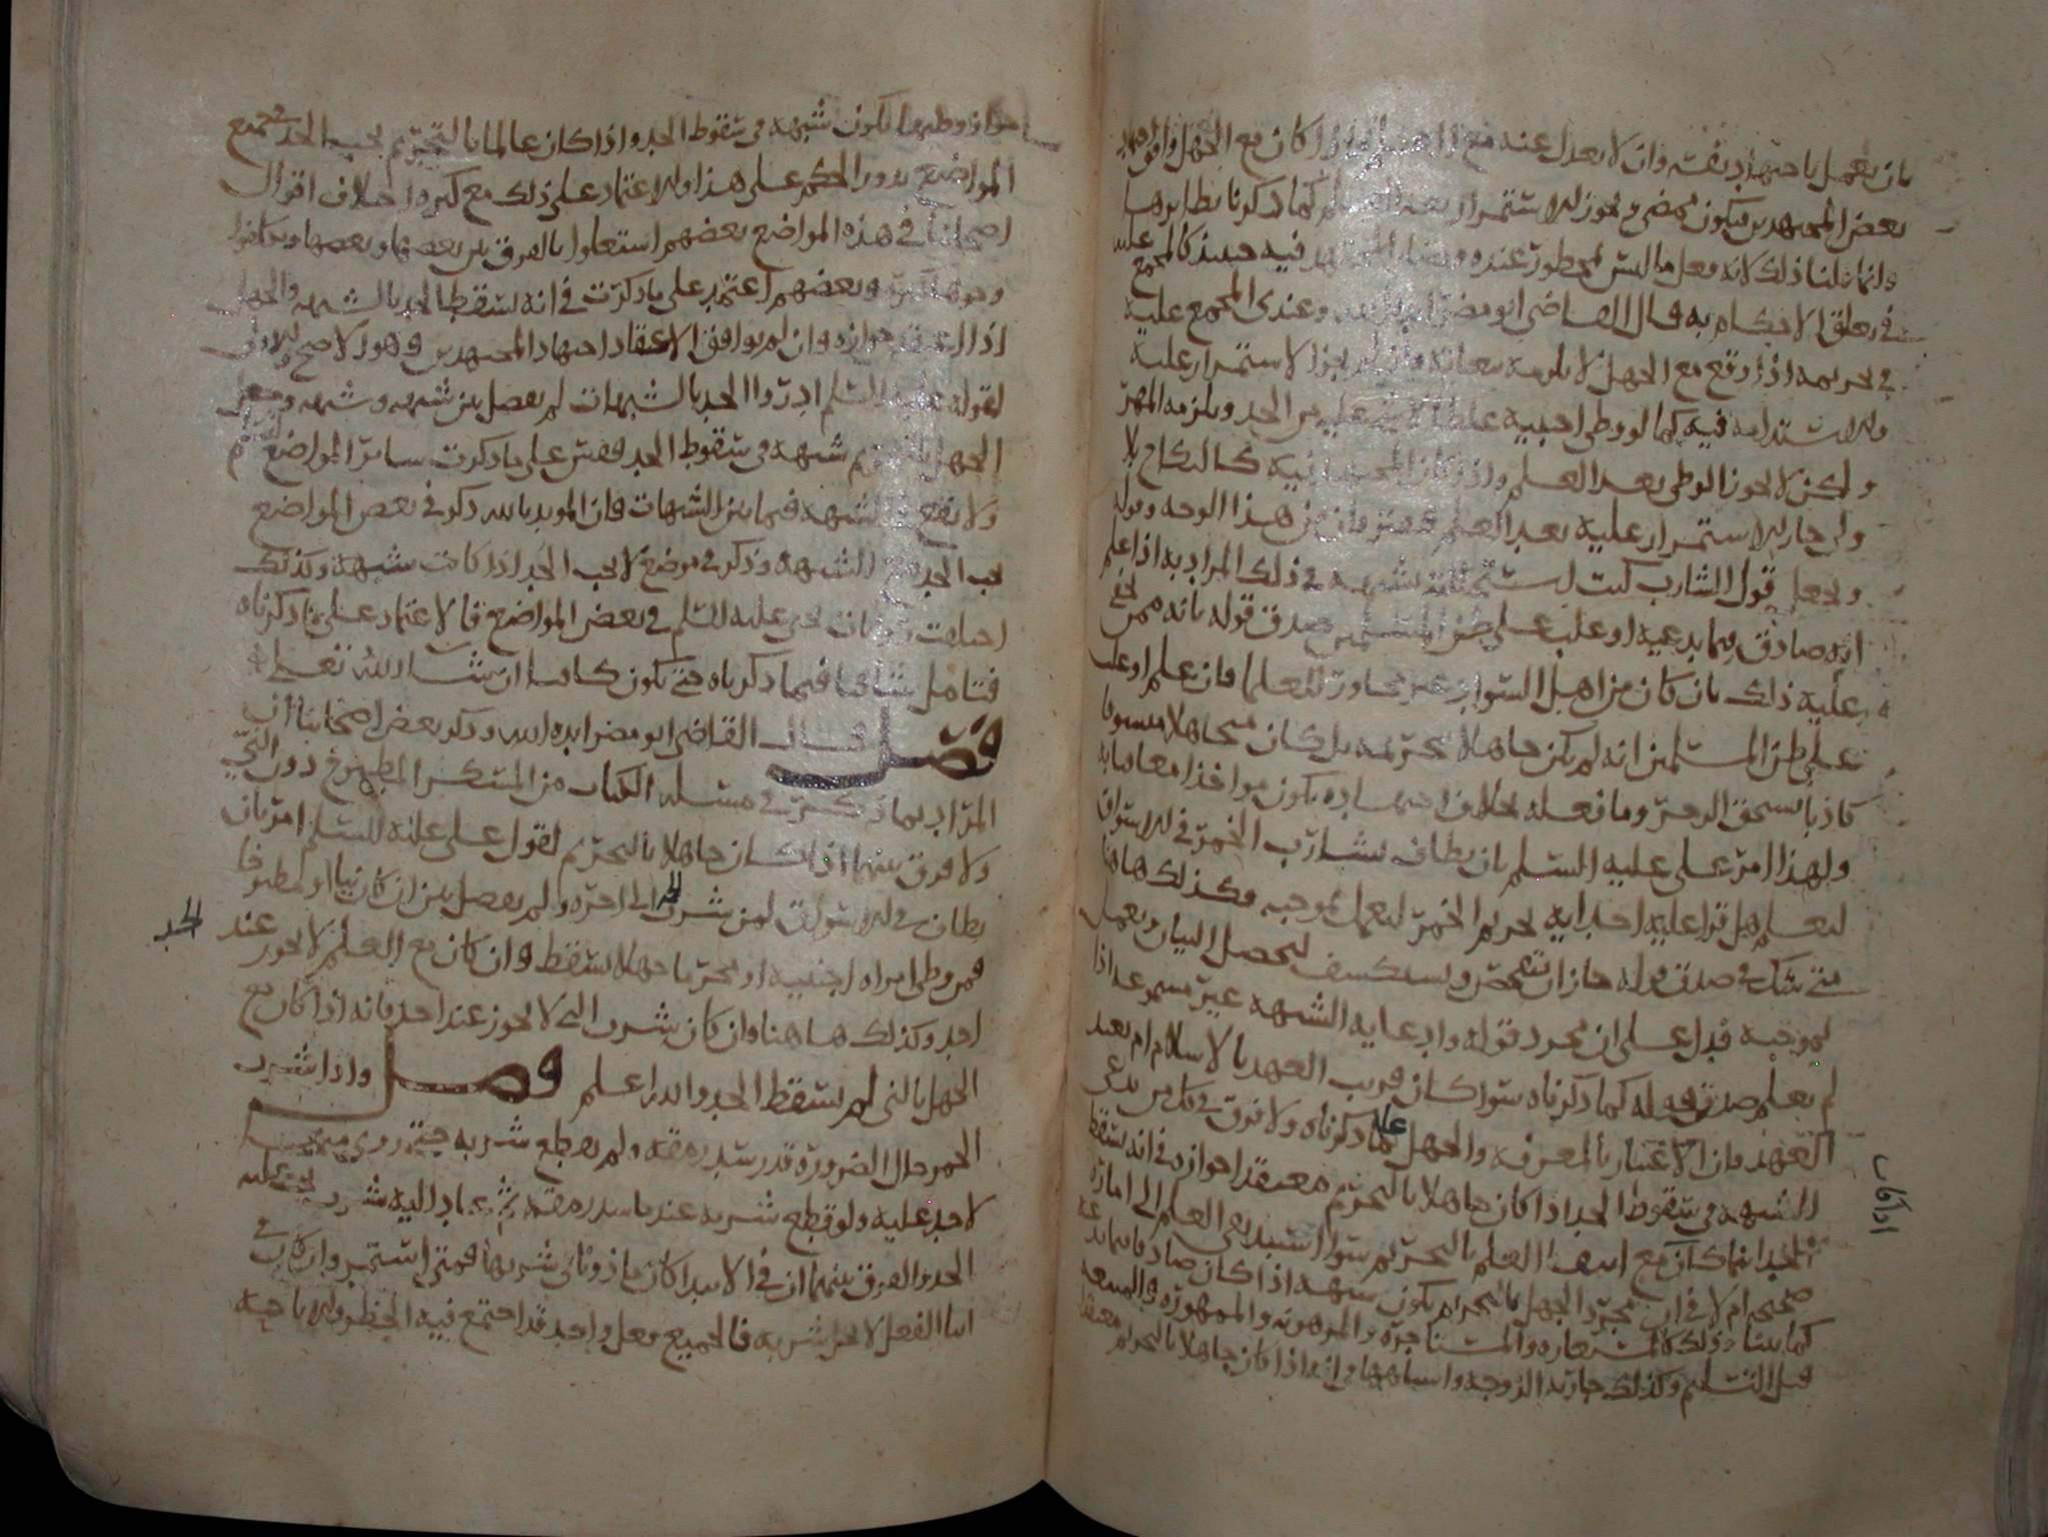 بان يعمل باجتهاد نفسه وان لا يعدل عنه مع اذا كان مع الجهل وافق اجتهاد
بعض المجتهدين فيكون ويجوز الاستمرار بعد العلم كما ذكرنا نظايرها
وانما قلنا ذلك لانه فعل ما ليس بمحظور عنده وصار المجتهد فيه حينئذ كالمجمع عليه
في تعلق الاحكام به قال القاضي ابو مضر ايده الله وعندي المجمع عليه
في تحريمه اذا وقع مع الجهل لا يلزمه تبعاته وان لم يجز الاستمرار عليه
والاستدامه فيه كما لو وطى اجنبية غلطا لا شي عليه من الحد ويلزمه المهر
ولكن لا يجوز الوطى بعد العلم واذا كان المجتهد فيه كالنكاح بلا
ولي جاز الاستمرار عليه بعد العلم فيفترقان من هذا الوجه وقوله
ويجعل قول الشارب كنت شبهة في ذلك المراد به اذا علم
انه صادق فيما يدعيه او غلب على ظن المسلمين صدق قوله بانه ممن يخفى
عليه ذلك بان كان من اهل السواد غير مجاور للعلما فان علم او غلب
على ظن المسلمين انه لم يكن جاهلا بتحريمه بل كان متجاهلا
كاذبا يستحق الزجر وما فعله بخلاف اجتهاده يكون مواخذا معاقبا به
ولهذا امر علي عليه السلام بان يطاف بشارب الخمر في الاسواق
ليعلم هل قرا عليه احد ايه تحريم الخمر ليعمل بموجبه وكذلك هاهنا
متى شك في صدق قوله جاز ان يتفحص ويستكشف ليحصل البيان ويعمل
بموجبه فدل على ان مجرد قوله وادعايه الشبهه غير مسموعه اذا
لم يعلم صدق قوله كما ذكرناه سوا كان قريب العهد بالاسلام ام بعيد
العهد فان الاعتبار بالمعرفه والجهل على ما ذكرناه ولا فرق في كل من يدعي
الشبهه في سقوط الحد اذا كان جاهلا بالتحريم معتقدا جوازه في انه يسقط
الحد انما كان مع انتفا العلم بالتحريم سوا استند نفي العلم الى اماره
صحيحه ام لا في ان مجرد الجهل بالتحريم يكون شبهه اذا كان صادقا فيما يدعيه
كما بينا وذلك كالمستعاره والمستاجره والمرهونه والممهوره والمبيعه
قبل التسليم وكذلك جارية الزوجه واشباهها في انه اذا كان جاهلا بالتحريم معتقدا
اذا كان
جواز وطيها يكون شبهه في سقوط الحد واذا كان عالما بالتحريم يجب الحد في جميع
المواضع يدور الحكم على هذا والاعتماد على ذلك مع كثره اختلاف اقوال
اصحابنا في هذه المواضع بعضهم استعلوا بالفرق بين بعضها وبعضها وذكروا
وجوها كثيرة وبعضهم اعتمد على ما ذكرت في انه يسقط الحد بالشبهه والجهل
اذا اعتقد جوازه وان لم يوافق الاعتقاد اجتهاد المجتهدين وهو الاصح والاولى
لقوله عليه السلام ادروا الحد بالشبهات لم يفصل بين شبهه وشبهه وجعل
الجهل بالتحريم شبهه في سقوط الحد فقس على ما ذكرت ساير المواضع
ولا الشبهه فيما بين الشبهات فان المويد بالله ذكر في بعض المواضع
يجب الحد مع الشبهه وذكر في موضع لا يجب الحد اذا كانت شبهة وكذلك
اختلفت يحيى عليه السلم في بعض المواضع فالاعتماد على ما ذكرناه
فتامل شافيا فيما ذكرناه حتى يكون كافيا ان شا الله تعلى
فصل قال القاضي ابو مضر ايده الله وذكر بعض اصحابنا ان
المراد بما ذكر في مسئله الكتاب من المسكر المطبوخ دون الني
ولا فرق بينهما اذا كان جاهلا بالتحريم لقول علي عليه السلم امر بان
يطاف في الاسواق لمن شرب الخمر الى اخره ولم يفصل بين ان كان نيا او مطبوخا
فمن وطى امراه اجنبيه او محرما جهلا يسقط وان كان مع العلم لا يجوز عند
الحد
احد وكذلك هاهنا وان كان شرب الني لا يجوز عند احد فانه اذا كان مع
الجهل بالني لم يسقط الحد والله اعلم فصل واذا شرب
الخمر حال الضرورة قدر سد رمقه ولم يقطع شربه حتى روي منه
لا حد عليه ولو قطع شربه عند ما سد رمقه ثم عاد اليه شرب يجب عليه
الحد والفرق بينهما ان في الابتدا كان ماذونا في شربها فمتى استمر وان كان في
اثنا الفعل لا يحل شربه فالجميع فعل واحد قد اجتمع فيه الحظر والاباحه